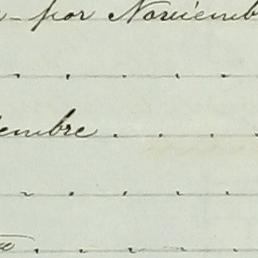 por Noviemb
embre